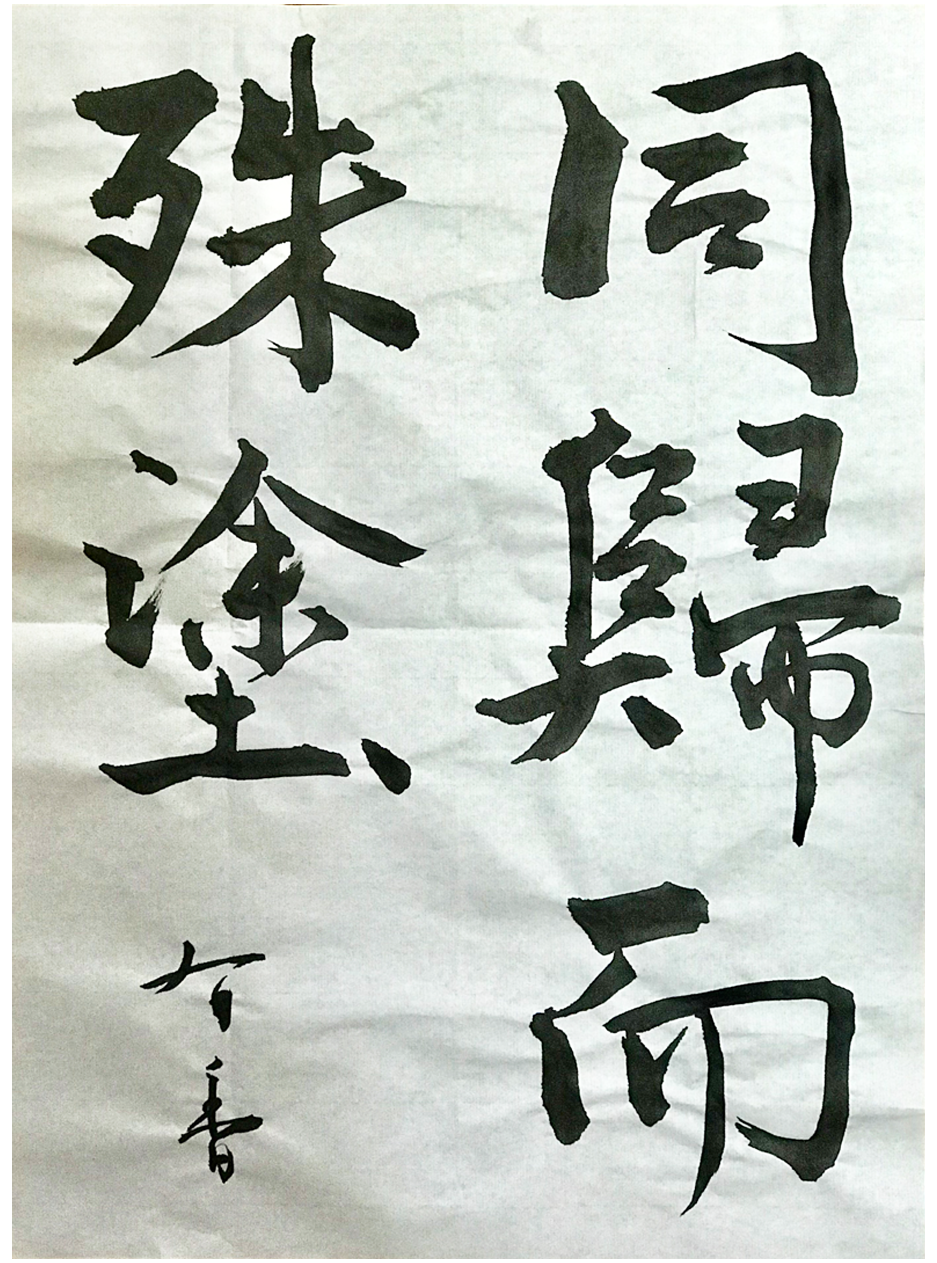 同歸而
殊塗
有香